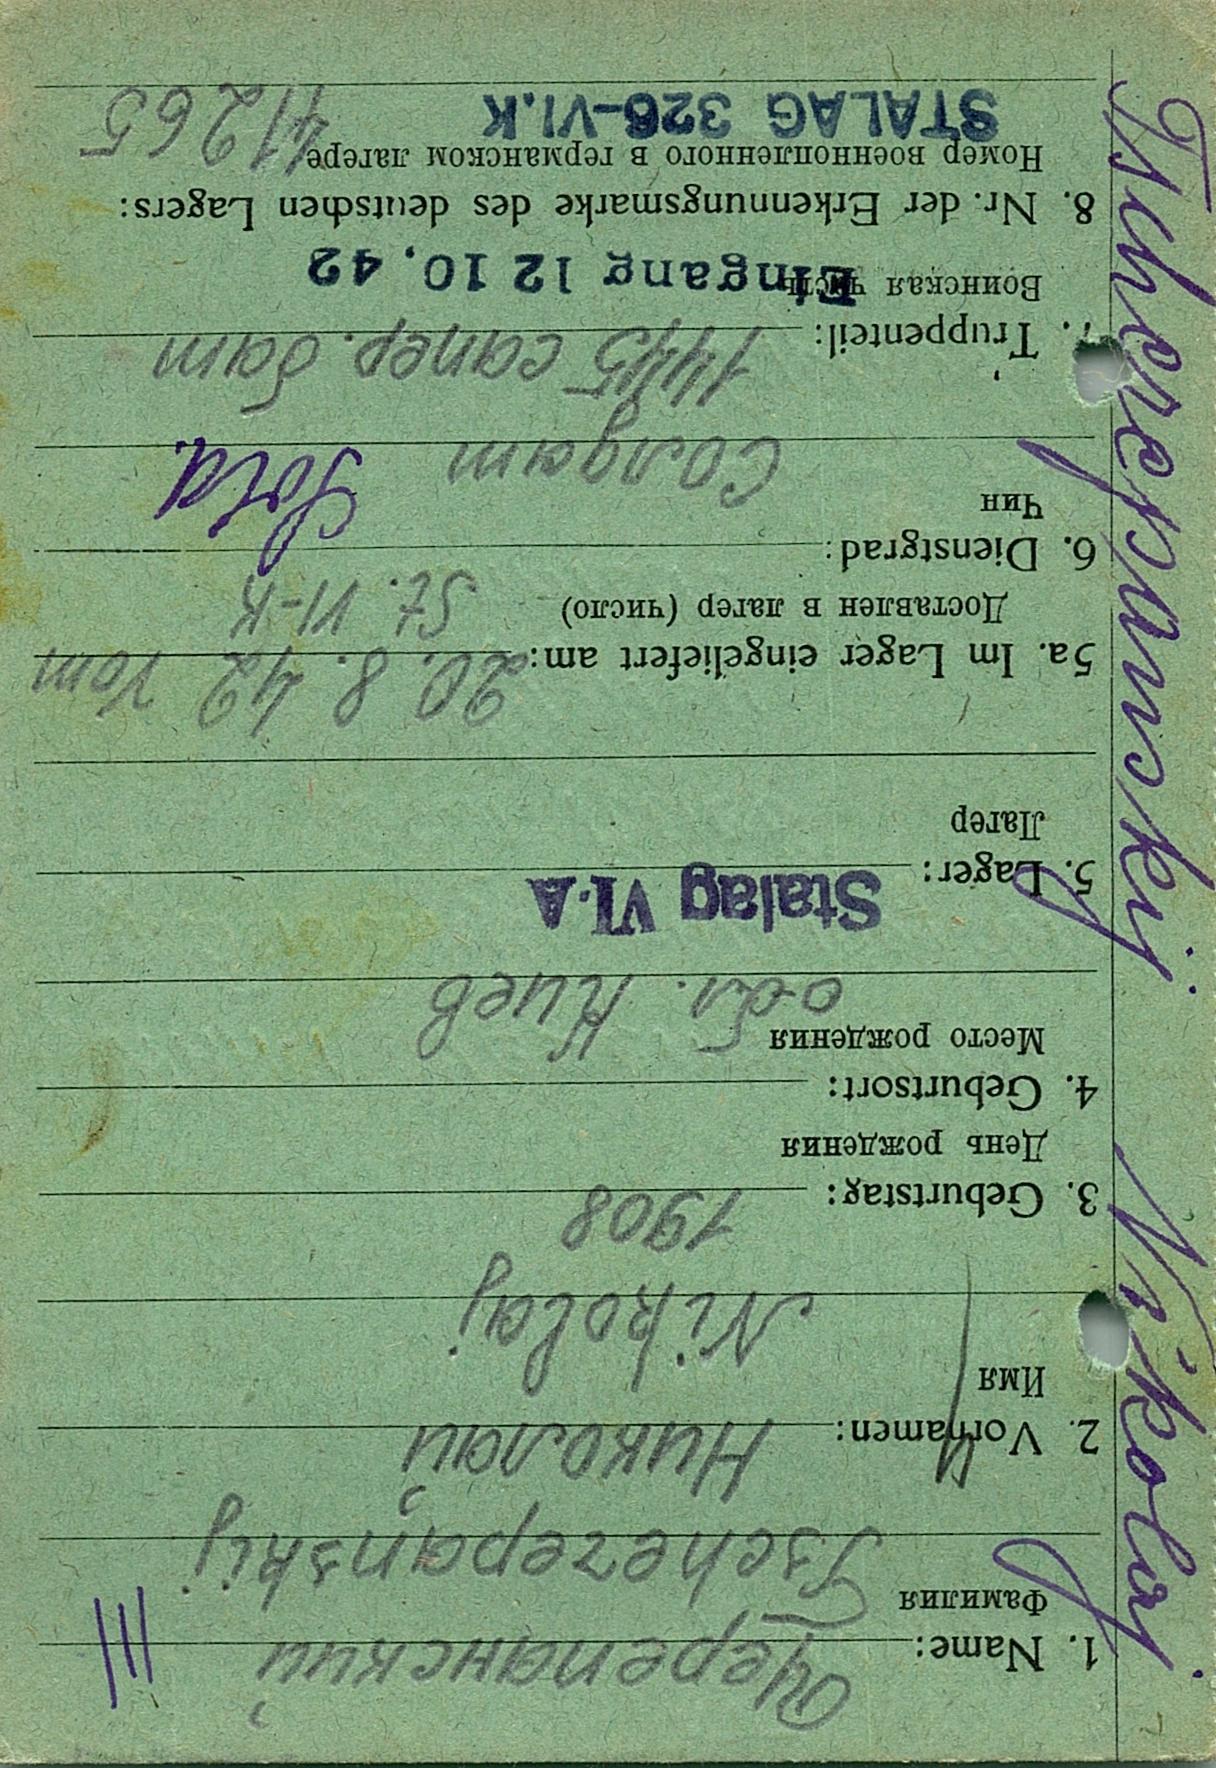 Tscherepanskij Nikolaj
III
Черепанский
1. Name:
Фамилия
Tscherepanskij
Николай
2. Vornamen:
Имя
Nikolaj
1908
3. Geburtstag:
День рождения
4. Geburtsort:
Место рождения
обл. Киев
Stalag VI.A
5. Lager:
Лагер
20. 8. 42 vom
5a. Im Lager eingeliefert am:
Доставлен в лагер (число)
St. VI-K
6. Dienstgrad:
Чин
Sold.
Солдат
1445 сапер. бат
7. Truppenteil:
Воинская часть
Eingang 12 10. 42
8. Nr. der Erkennungsmarke des deutschen Lagers:
Номер военнопленного в германском лагере
STALAG 326-VI.K
41265